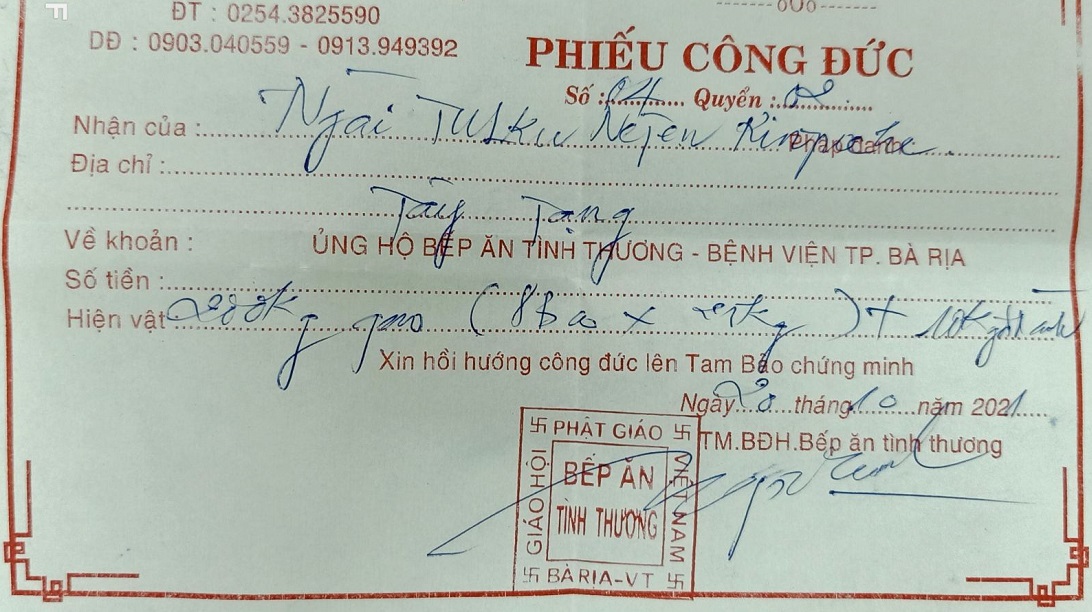 ĐT : 0254.3825590
DĐ : 0903.040559 - 0913.949392
-------oOo-------
PHIẾU CÔNG ĐỨC
Số :04 Quyển :02
Nhận của : Ngài Tulku Neten Rinpoche.
Địa chỉ :
Tây Tạng
Về khoản : ỦNG HỘ BẾP ĂN TÌNH THƯƠNG - BỆNH VIỆN TP. BÀ RỊA
Số tiền :
Hiện vật 200kg gạo (8Bao x 25kg) + 10kg
Xin hồi hướng công đức lên Tam Bảo chứng minh
Ngày 20 tháng 10 năm 2021
TM.BĐH.Bếp ăn tình thương
卐 PHẬT GIÁO 卐
GIÁO HỘI
BẾP ĂN
TÌNH THƯƠNG
VIỆT NAM
卐 BÀ RỊA-VT 卐